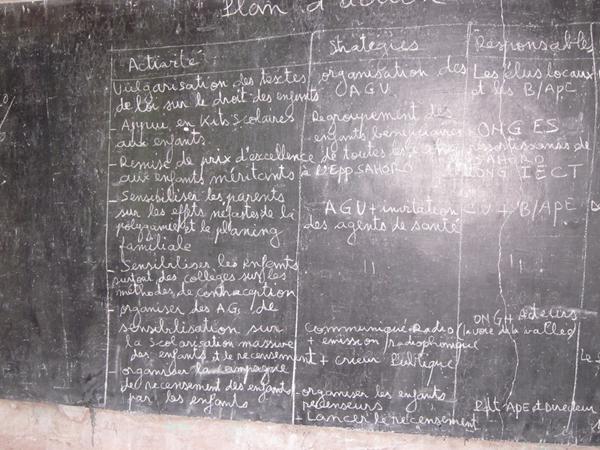 Plan d'action
Activité
Vulgarisation des textes
de loi sur le droit des enfants
- Appui en Kits Scolaires
aux enfants
- Remise de prix d'excellence
aux enfants méritants
- Sensibiliser les parents
sur les effets néfastes de la
polygamie et le planing
familiale
- Sensibiliser les enfants
surtout des collèges sur les
méthodes de contraception
- organiser des AG, de
sensibilisation sur
la scolarisation massive
des enfants et le recensement
- organiser la campagne
de recensement des enfants
par les enfants
Stratégies
organisation des
AGV
Regroupement des
enfants bénéficiaires
de toutes les
à l'Epp SAHORO
AGV + invitation
des agents de santé
"
communiqué-Radio
+ emission radiophonique
+ crieur Publique
- organiser les enfants
recenseurs
- Lancer le recensement
Responsables
Les élus locaux
et les B/ApE
ONG ES
ressortissants de
SAHORO
ONG IECT
CV + B/ApE
"
ONG + Acteurs
(la voie de la vallée)
Pdt APE et Directeur
%